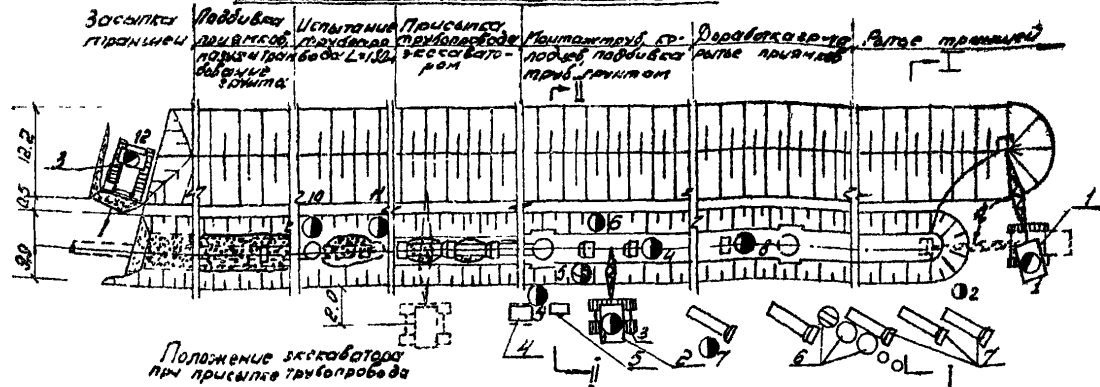 Засыпка
траншеи
Подбивка
приямков,
пазух и трам-
бование
грунта
Испытание
трубопро-
вода L=132м
Присыпка
трубопровода
экскавато-
ром
Монтаж труб,
подбивка
труб грунтом
Доработка грунта
рытье приямков
Рытье траншей
I
II
12.2
0.5
3.9
2.0
12
3
1
10
11
6
4
8
5
1
1
2
4
5
3
2
7
6
7
II
I
Положение экскаватора
при присыпке трубопровода